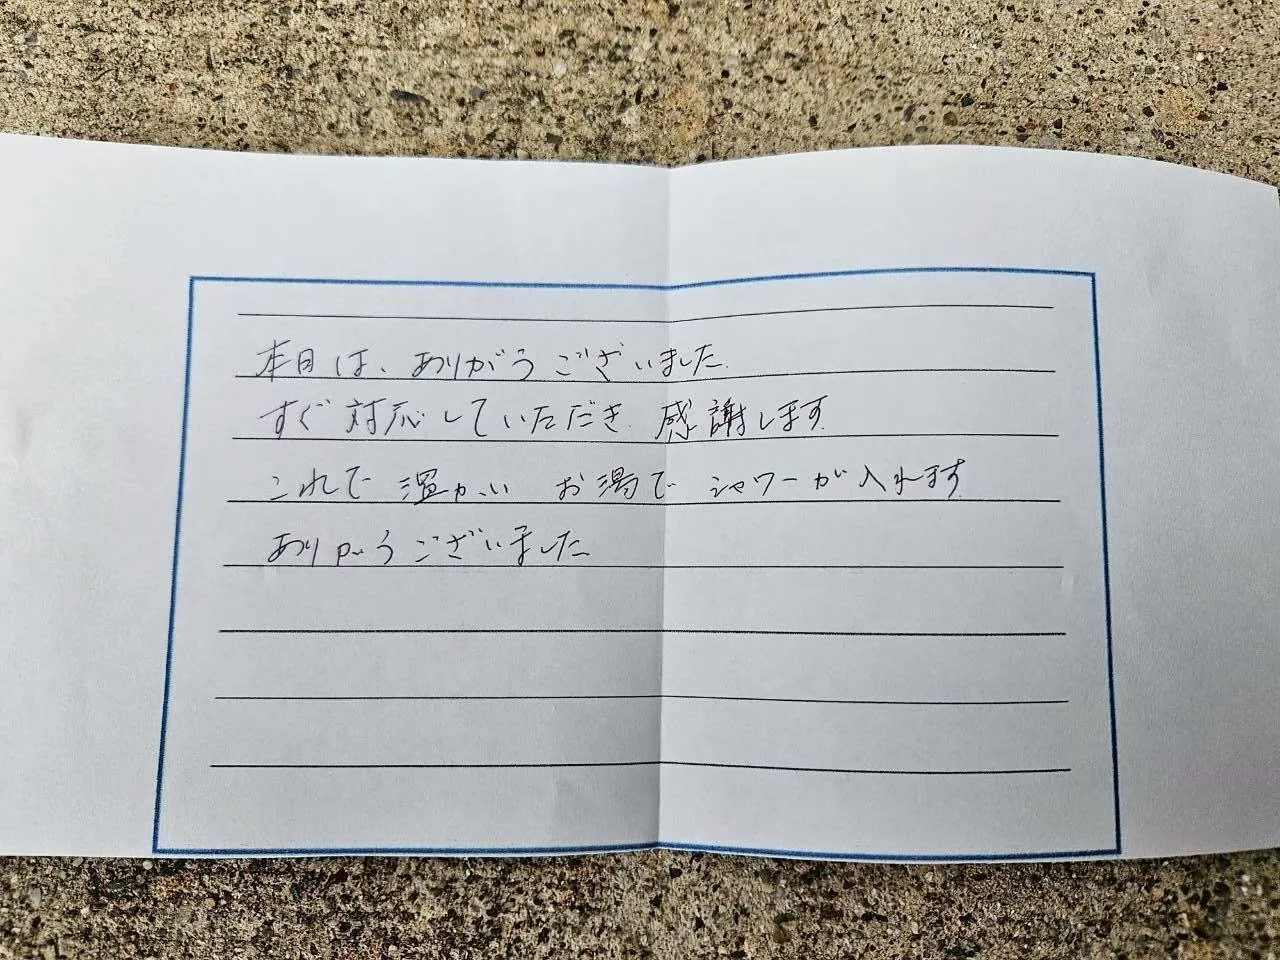 本日は、ありがうございました
すぐ対応していただき、感謝します
これで温かい お湯でシャワーが入れます
ありがうございました